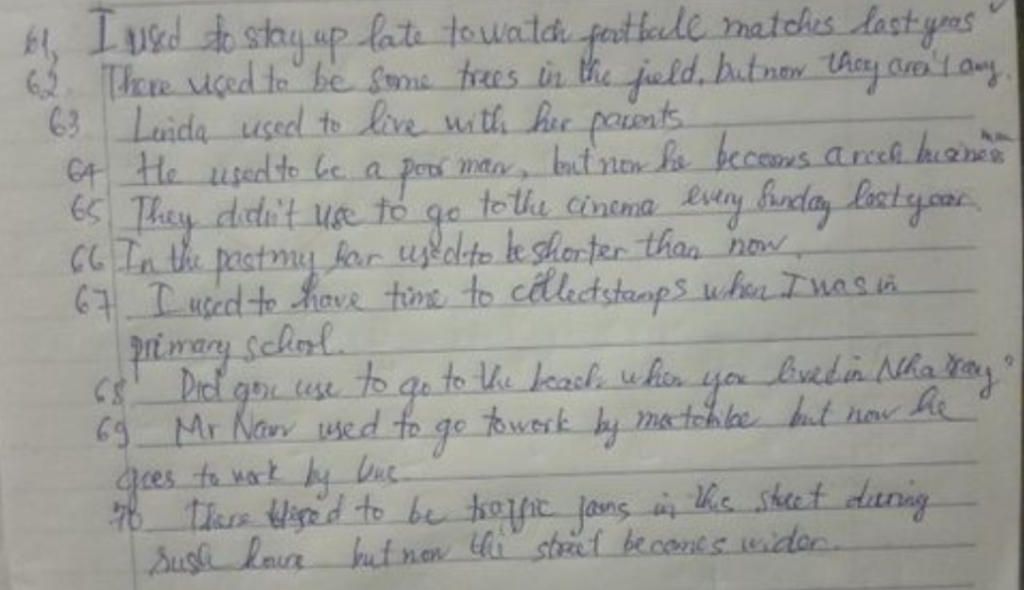 61, I used to stay up late to watch football matches last years
62. There used to be some trees in the field, but now they aren't any.
63 Linda used to live with her parents
64 He used to be a poor man, but now he becomes a rich business man
65 They didn't use to go to the cinema every Sunday last year.
66 In the past my hair used to be shorter than now.
67 I used to have time to collect stamps when I was in
primary school.
68 Did you use to go to the beach when you lived in Nha Trang?
69 Mr Nam used to go to work by motorbike but now he
goes to work by bus
70 There used to be traffic jams in this street during
rush hour but now the street becomes wider.